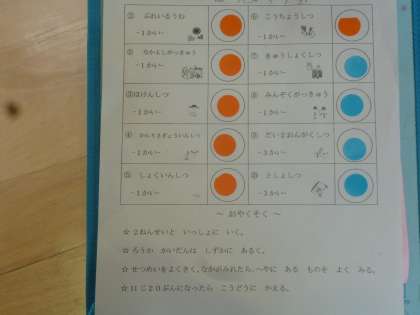 ぷれいるうむ
－１かい－
なかよしがっきゅう
－１かい－
③ほけんしつ
－１かい－
④
－１かい－
⑤ しょくいんしつ
－１かい－
⑥ こうちょうしつ
－１かい－
⑦ きゅうしょくしつ
－１かい－
⑧ みんぞくがっきゅう
⑨ だい２おんがくしつ
としょしつ
～ おやくそく ～
☆ ２ねんせいと いっしょに いく。
☆ ろうか かいだんは しずかに あるく。
☆ せつめいを よくきく。なかがみれたら、へやに ある ものを よく みる。
☆ １１じ２０ぷんになったら こうどうに かえる。